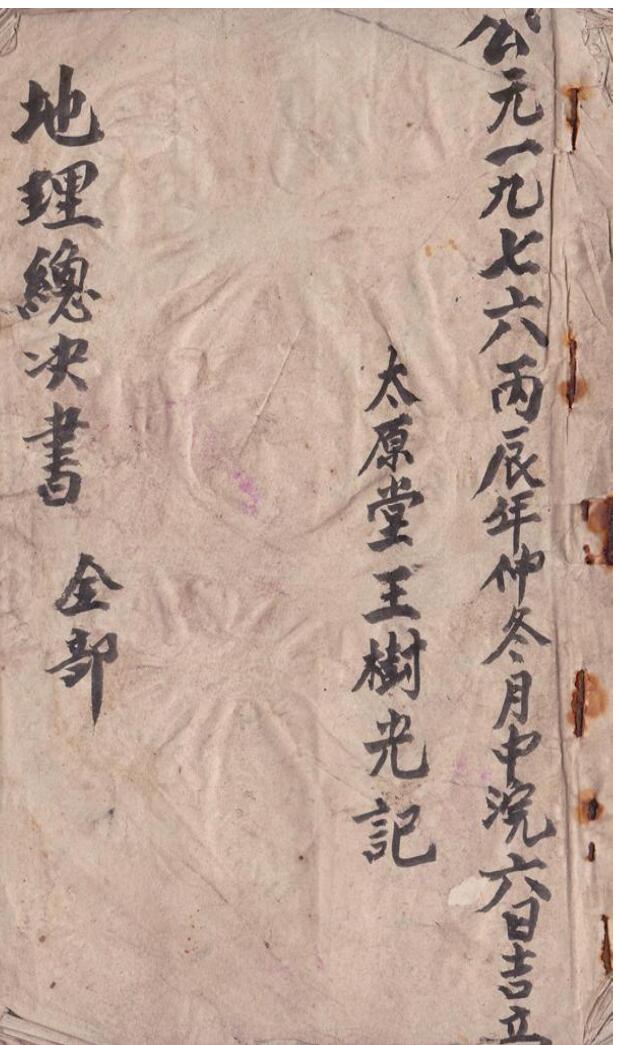 公元一九七六丙辰年仲冬月中浣六日吉立
太原堂王樹光記
地理總决書 全部